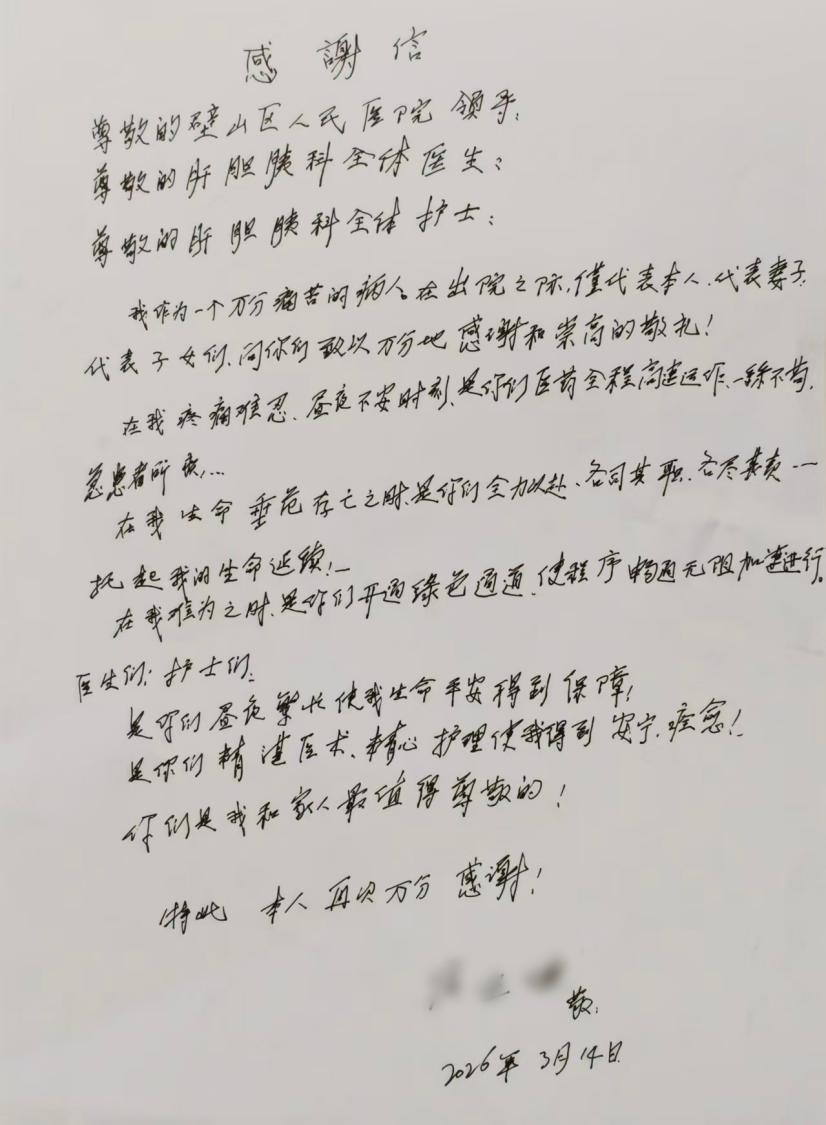 感謝信
尊敬的壁山区人民医院领导:
尊敬的肝胆胰科全体医生:
尊敬的肝胆胰科全体护士:
我作为一个万分痛苦的病人。在出院之际,僅代表本人、代表妻子、
代表子女们、向你们致以万分地感谢和崇高的敬礼!
在我疼痛难忍、昼夜不安时刻,是你们医药全程高速运作、一丝不苟,
急患者所急,...
在我生命垂危存亡之时,是你们全力以赴、各司其职、各尽其责一
托起我的生命延续!
在我难为之时、是你们开通绿色通道、使程序畅通无阻加速进行。
医生们:护士们:
是你们昼夜繁忙使我生命平安得到保障!
是你们精湛医术、精心护理使我得到安宁、痊愈!
你们是我和家人最值得尊敬的!
特此 本人再次万分感谢!
敬:
2026年3月14日